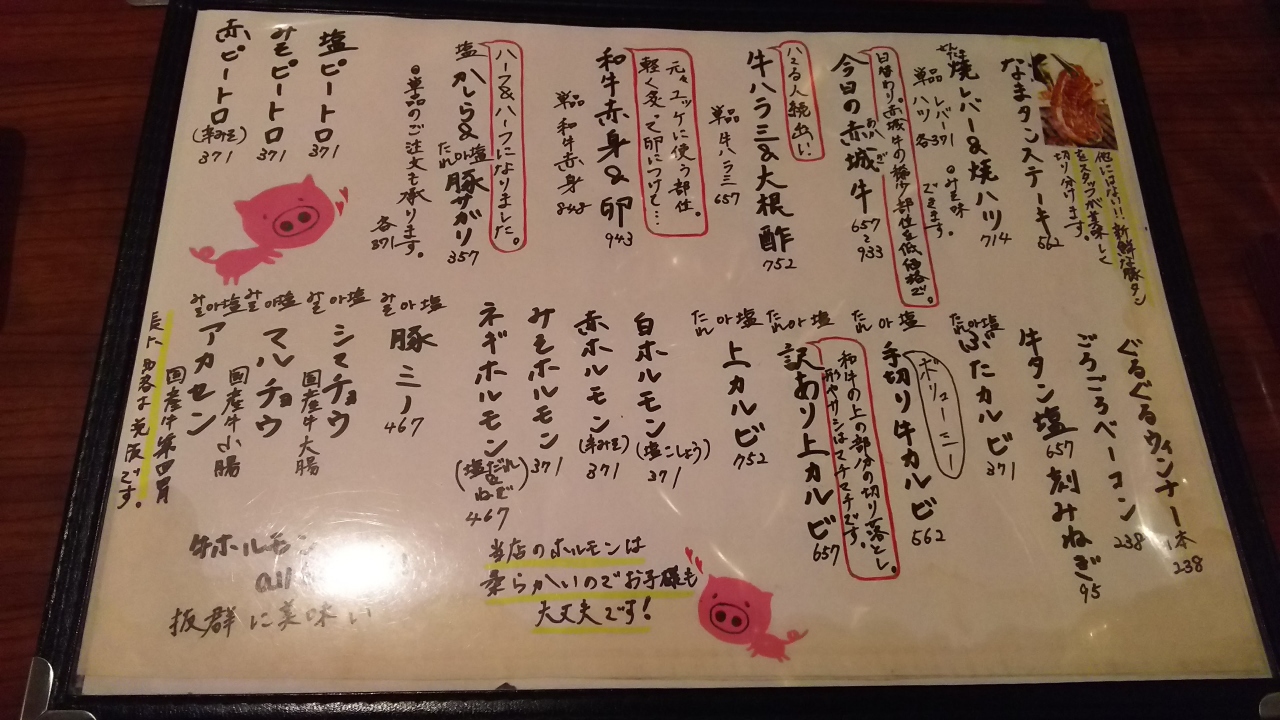 なまタンステーキ
562
他にはない!!新鮮な豚タン
をスタッフが美味しく
切り分けます。
焼レバー&焼ハツ
714
単品 レバー371
ハツ 各
◎みそ味
できます。
今日の赤城牛
あかぎ
657
~
933
日替わり。赤城牛の稀少部位を低価格で。
牛ハラミ&大根酢
752
ハマる人続出!!
単品 牛ハラミ
657
和牛赤身&卵
943
元々ユッケに使う部位。
軽く炙って卵につけて…
単品 和牛赤身
848
塩かしら&豚サガリ
たれor塩
357
ハーフ&ハーフになりました。
◎単品のご注文も承ります。
各371
塩ピートロ
371
みそピートロ
371
赤ピートロ
(辛みそ)
371
ぐるぐるウィンナー
1本
238
ごろごろベーコン
238
牛タン塩
657
刻みねぎ
95
たれor塩
ぶたカルビ
371
たれor塩
手切り牛カルビ
562
ボリューミー
たれor塩
訳あり上カルビ
657
和牛の上の部分の切り落とし。
形やサシはマチマチです。
たれor塩
上カルビ
752
白ホルモン
(塩こしょう)
371
赤ホルモン
(辛みそ)
371
みそホルモン
371
ネギホルモン
(塩だれ&ねぎ)
467
みそor塩
豚ミノ
467
みそor塩
シマチョウ
国産牛大腸
みそor塩
マルチョウ
国産牛小腸
みそor塩
アカセン
国産牛第四胃
当店のホルモンは
柔らかいのでお子様も
大丈夫です!
牛ホルモン
all
抜群に美味い